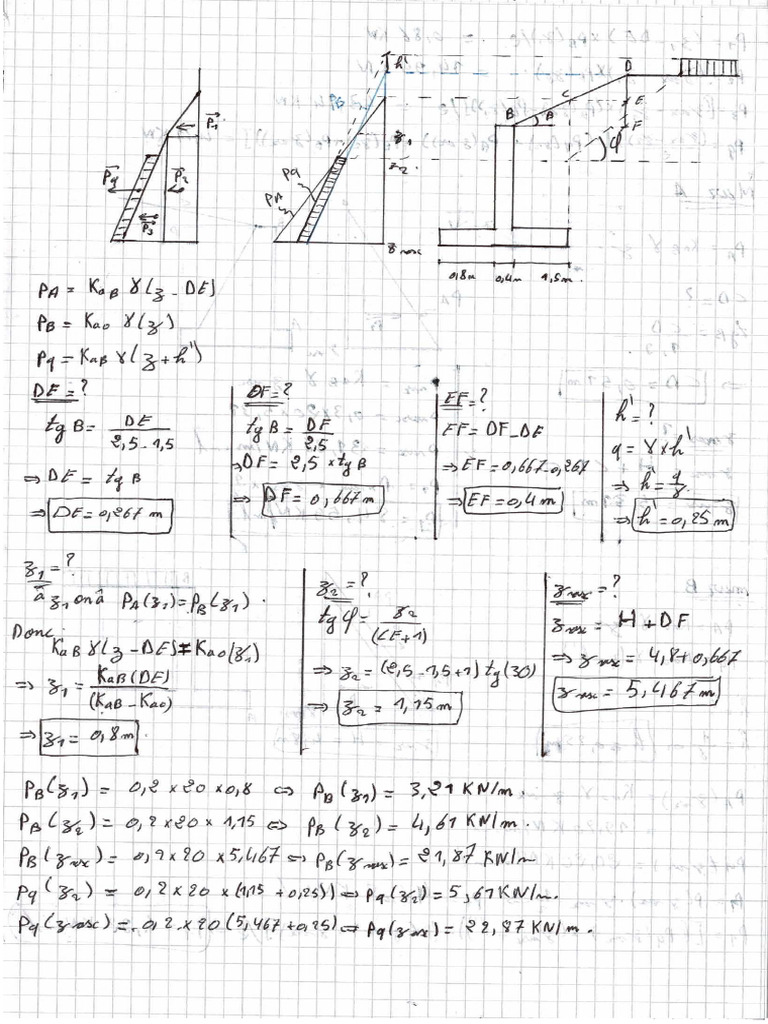 h'
D
PB
C
E
B
B
F
φ
P₁
z₁
z₂
Pq
P₂
Pq
PA
P₃
z max
0,8m 0,4m 1,5m.
PA = KaB γ(z - DE)
PB = Kao γ(z)
Pq = KaB γ(z + h')
DE = ?
tg B = DE / 2,5-1,5
⇒ DE = tg B
⇒ DE = 0,267 m
DF = ?
tg B = DF / 2,5
⇒ DF = 2,5 × tg B
⇒ DF = 0,667 m
EF = ?
EF = DF - DE
⇒ EF = 0,667-0,267
⇒ EF = 0,4 m
h' = ?
q = γ × h'
⇒ h' = q/γ
⇒ h' = 0,25 m
z₁ = ?
à z₁ on â PA(z₁) = PB(z₁).
Donc
KaB γ(z - DE) = Kao(z₁)
⇒ z₁ = KaB(DE) / (KaB - Kao)
⇒ z₁ = 0,8m.
z₂ = ?
tg φ = z₂ / (CF+1)
⇒ z₂ = (2,5 - 1,5+1) tg(30)
⇒ z₂ = 1,15 m
z max = ?
z max = H + DF
⇒ z max = 4,8+0,667
z max = 5,467 m
PB(z₁) = 0,2 × 20 × 0,8 ⇔ PB(z₁) = 3,21 KN/m.
PB(z₂) = 0,2 × 20 × 1,15 ⇔ PB(z₂) = 4,61 KN/m.
PB(z max) = 0,2 × 20 × 5,467 ⇔ PB(z max) = 21,87 KN/m
Pq(z₂) = 0,2 × 20 × (1,15 + 0,25)) ⇔ Pq(z₂) = 5,61 KN/m.
Pq(z max) = 0,2 × 20 (5,467+0,25) ⇔ Pq(z max) = 22,87 KN/m.